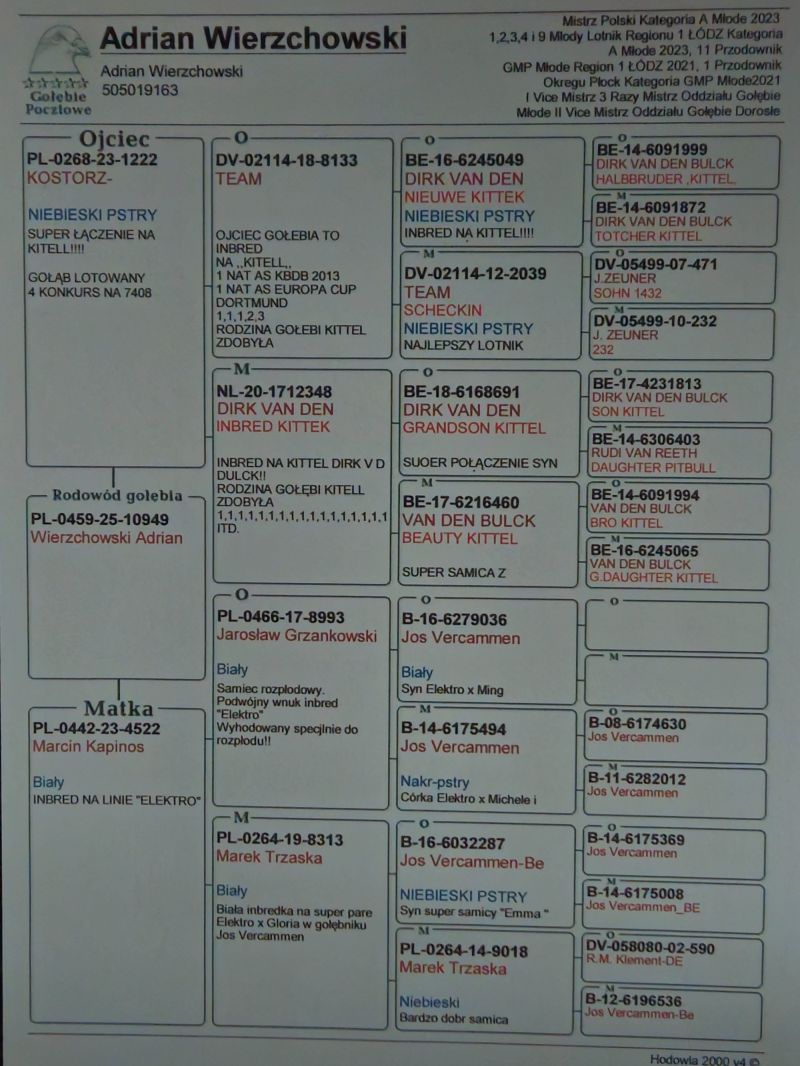 Adrian Wierzchowski
Adrian Wierzchowski
505019163
Gołębie
Pocztowe
Mistrz Polski Kategoria A Młode 2023
1,2,3,4 i 9 Młody Lotnik Regionu 1 ŁÓDZ Kategoria
A Młode 2023, 11 Przodownik
GMP Młode Region 1 ŁÓDZ 2021, 1 Przodownik
Okregu Płock Kategoria GMP Młode2021
I Vice Mistrz 3 Razy Mistrz Oddziału Gołębie
Młode II Vice Mistrz Oddziału Gołębie Dorosłe
Ojciec
PL-0268-23-1222
KOSTORZ-
NIEBIESKI PSTRY
SUPER ŁĄCZENIE NA
KITELL!!!!
GOŁĄB LOTOWANY
4 KONKURS NA 7408
Rodowód gołebia
PL-0459-25-10949
Wierzchowski Adrian
Matka
PL-0442-23-4522
Marcin Kapinos
Biały
INBRED NA LINIE "ELEKTRO"
O
DV-02114-18-8133
TEAM
OJCIEC GOŁEBIA TO
INBRED
NA ,,KITELL,,
1 NAT AS KBDB 2013
1 NAT AS EUROPA CUP
DORTMUND
1,1,1,2,3
RODZINA GOŁEBI KITTEL
ZDOBYŁA
M
NL-20-1712348
DIRK VAN DEN
INBRED KITTEK
INBRED NA KITTEL DIRK V D
DULCK!!
RODZINA GOŁĘBI KITELL
ZDOBYŁA
1,1,1,1,1,1,1,1,1,1,1,1,1,1,1
ITD.
O
PL-0466-17-8993
Jarosław Grzankowski
Biały
Samiec rozpłodowy.
Podwójny wnuk inbred
"Elektro"
Wyhodowany specjlnie do
rozpłodu!!
M
PL-0264-19-8313
Marek Trzaska
Biały
Biała inbredka na super pare
Elektro x Gloria w gołębniku
Jos Vercammen
O
BE-16-6245049
DIRK VAN DEN
NIEUWE KITTEK
NIEBIESKI PSTRY
INBRED NA KITTEL!!!!
M
DV-02114-12-2039
TEAM
SCHECKIN
NIEBIESKI PSTRY
NAJLEPSZY LOTNIK
O
BE-18-6168691
DIRK VAN DEN
GRANDSON KITTEL
SUOER POŁĄCZENIE SYN
M
BE-17-6216460
VAN DEN BULCK
BEAUTY KITTEL
SUPER SAMICA Z
O
B-16-6279036
Jos Vercammen
Biały
Syn Elektro x Ming
M
B-14-6175494
Jos Vercammen
Nakr-pstry
Córka Elektro x Michele i
O
B-16-6032287
Jos Vercammen-Be
NIEBIESKI PSTRY
Syn super samicy "Emma "
M
PL-0264-14-9018
Marek Trzaska
Niebieski
Bardzo dobr samica
O
BE-14-6091999
DIRK VAN DEN BULCK
HALBBRUDER ,KITTEL,
M
BE-14-6091872
DIRK VAN DEN BULCK
TOTCHER KITTEL
O
DV-05499-07-471
J.ZEUNER
SOHN 1432
M
DV-05499-10-232
J. ZEUNER
232
O
BE-17-4231813
DIRK VAN DEN BULCK
SON KITTEL
M
BE-14-6306403
RUDI VAN REETH
DAUGHTER PITBULL
O
BE-14-6091994
VAN DEN BULCK
BRO KITTEL
M
BE-16-6245065
VAN DEN BULCK
G.DAUGHTER KITTEL
O
M
O
B-08-6174630
Jos Vercammen
M
B-11-6282012
Jos Vercammen
O
B-14-6175369
Jos Vercammen
M
B-14-6175008
Jos Vercammen_BE
O
DV-058080-02-590
R.M. Klement-DE
M
B-12-6196536
Jos Vercammen-Be
Hodowla 2000 v4 ©